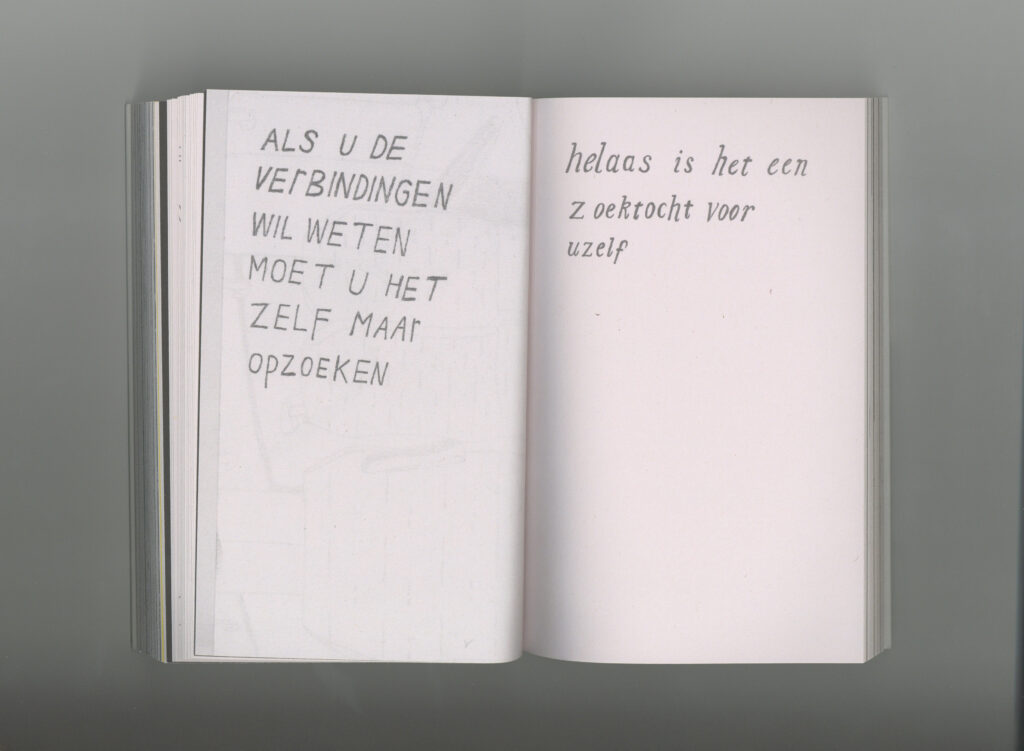 ALS U DE
VErBINDINGEN
WIL WETEN
MOET U HET
ZELF MAAr
OpZOEKEN
helaas is het een
zoektocht voor
uzelf